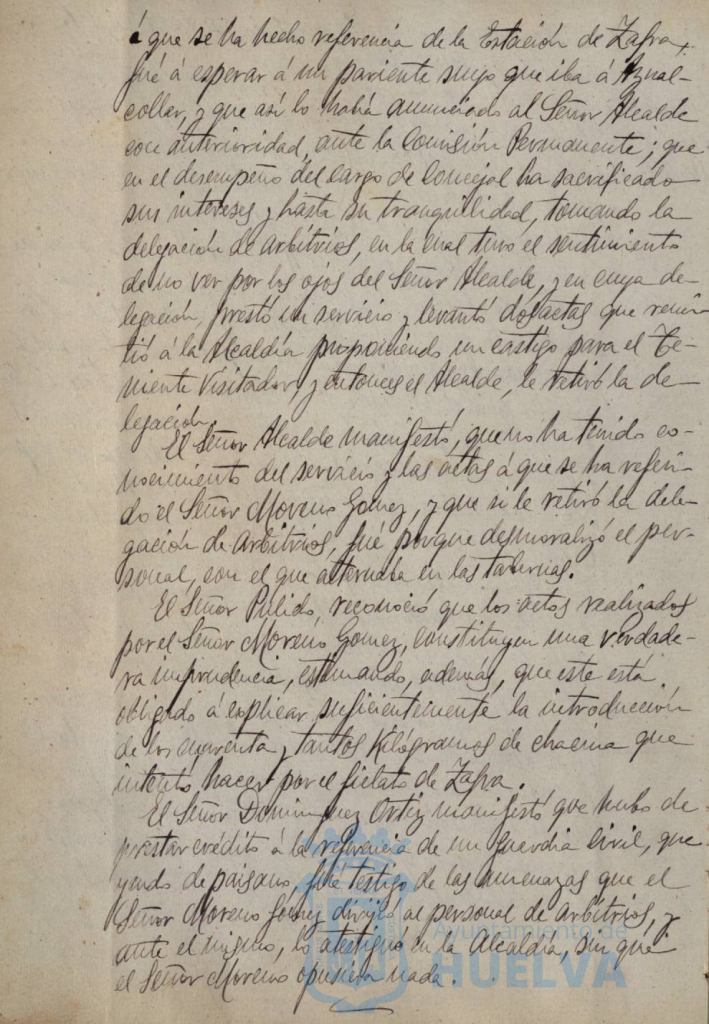 á que se ha hecho referencia de la Estación de Zafra,
fué á esperar á un pariente suyo que iba á Aznal-
collar, y que así lo había anunciado al Señor Alcalde
con anterioridad, ante la Comisión Permanente; que
en el desempeño del cargo de Concejal ha sacrificado
sus intereses y hasta su tranquilidad, tomando la
delegación de arbitrios, en la cual tuvo el sentimiento
de no ver por los ojos del Señor Alcalde, y en cuya de-
legación, prestó un servicio y levantó dos actas que remi-
tió á la Alcaldía proponiendo un castigo para el Te-
niente Visitador, y entonces el Alcalde, le retiró la de-
legación.
El Señor Alcalde manifestó, que no ha tenido co-
nocimiento del servicio y las actas á que se ha referi-
do el Señor Moreno Gomez, y que si le retiró la dele-
gación de Arbitrios, fué porque desmoralizó el per-
sonal, con el que alternaba en las tabernas.
El Señor Pulido, reconoció que los actos realizados
por el Señor Moreno Gomez, constituyen una verdade-
ra imprudencia, estimando, además, que este está
obligado á explicar suficientemente la introducción
de los cuarenta y tantos Kilógramos de chacina que
intentó hacer por el fielato de Zafra.
El Señor Dominguez Ortiz manifestó que hubo de
prestar crédito á la referencia de un guardia civil, que
yendo de paisano, fué testigo de las amenazas que el
Señor Moreno Gómez dirijió al personal de arbitrios, y
ante el mismo, lo atestiguó en la Alcaldía, sin que
el Señor Moreno opusiera nada.
Ayuntamiento de
HUELVA